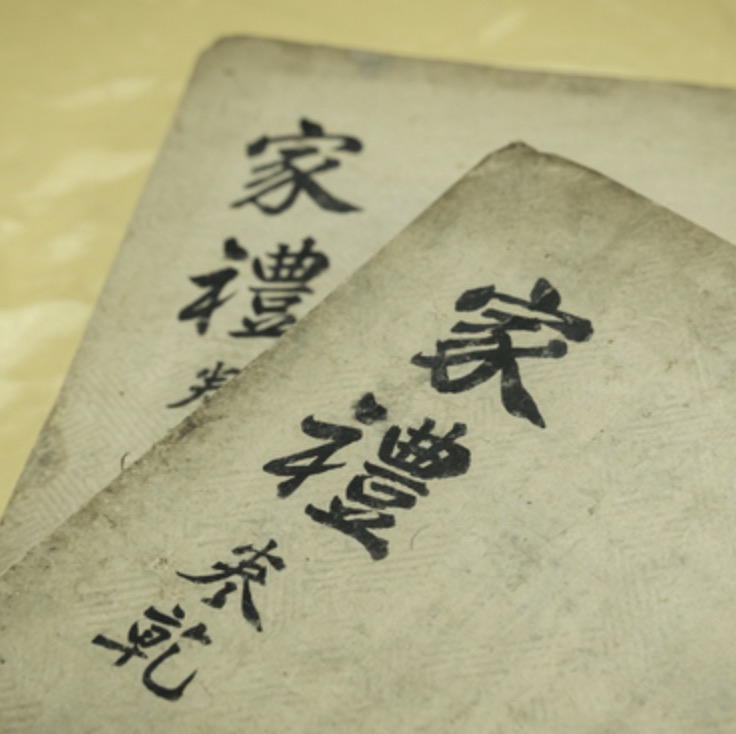 家禮
家禮卷乾